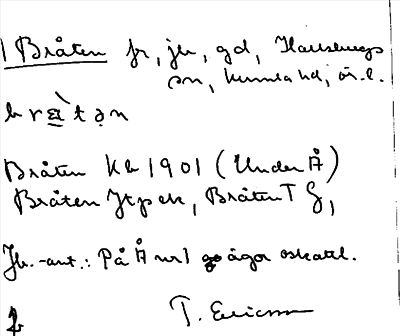 1 Bråten fr, jb, gd, Hallsbergs
sn, Kumla hd, ör. l.
bræ̀tən
Bråten Kb 1901 (Under Å)
Bråten Jtp ek, Bråten T G,
Jb.-ant.: På Å nr 1 ägor oskattl.
T. Ericsson